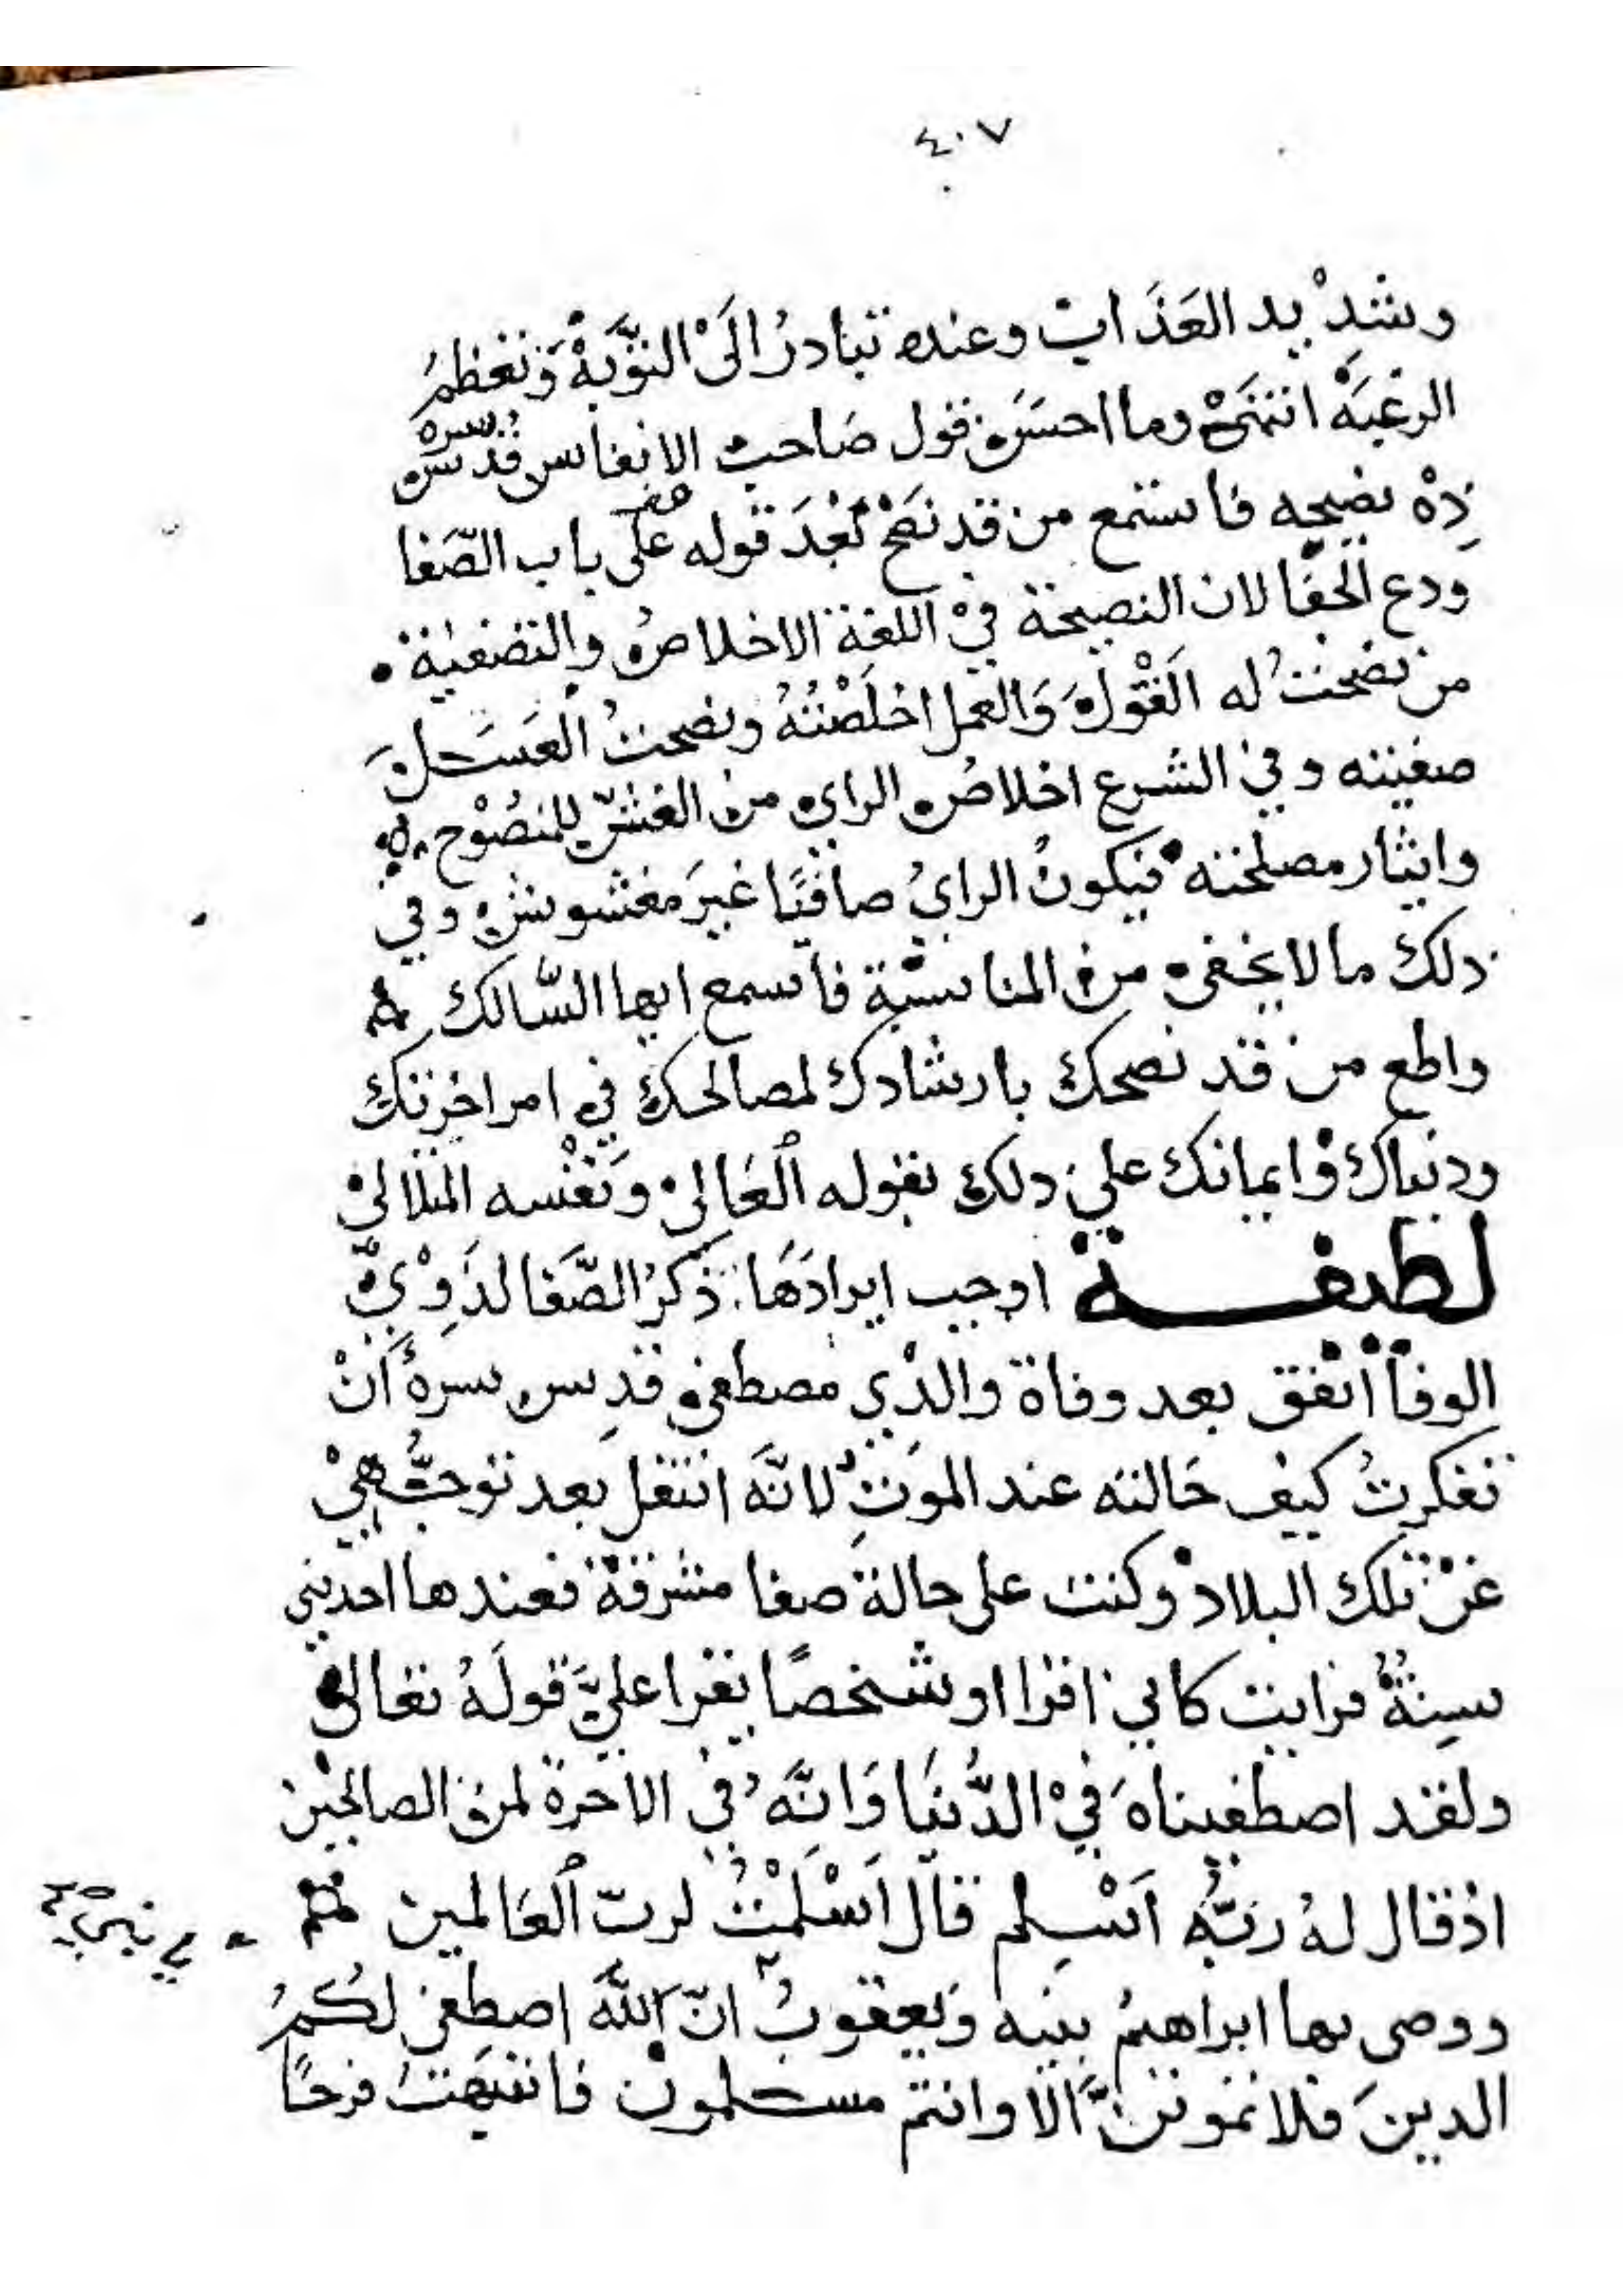 ٤٠٧
وشديد العذاب وعنده تبادرُ الَىْ التوَّبةْ وَتعظمُ
الرغبَةْ انتهَىْ وما احسَنَ قول صَاحب الانفاس قُدّس سره
نصيحه فاستمع من قد نَصَحْ بَعْدَ قوله على باب الصّفا
ودع الجفا لان النصيحة فيْ اللغة الاخلاصُ والتصفية
من نصحتُ له القَوْلَ وَالعمل اخلَصْتُهُ ونصحتُ العَسَل
صفيته وفي الشرع اخلاصُ الراي من الغشّ للمنصُوْح
وايثار مصلحته فيكونُ الرايُ صافيًا غيرَ مغشوش وفي
ذلك ما لا يخفى من المناسبَة فاسمع ايها السَّالك
واطع من قد نصحك بارشادك لمصالحك في امر اخرتك
ودنياك وايمانك علي ذلك بقوله العَالي وَنَفْسه
لطيفة اوجب ايرادَهَا ذكرُ الصَّفا لذَوِيْ
الوفا اتفق بعد وفاة والدي مصطفى قدس سرهُ أنْ
تفكرتُ كيف حَالته عند الموتِ لانَّهَ انتقل بعد توجُّهيْ
عنْ تلك البلادْ وكنت على حالة صفا مشرقةْ فعندها اخذتني
سِنةٌ فرايت كاني اقرا او شخصًا يقرا عليَّ قولَهُ تعالى
ولقد اصطفيناهَ فيْ الدُّنيَا وَانَّهُ في الاخرة لمن الصالحين
اذ قال لهُ ربُّه اَسْلِم قال اَسْلَمْتُ لربّ العَالمين
ووصى بها ابراهيمُ بنيه وَيعقوبُ انّ اللَّهَ اصطفى لكُمُ
الدينَ فلا تموتنَّ الّا وانتم مسلمون فانتبَهتُ فرحًا